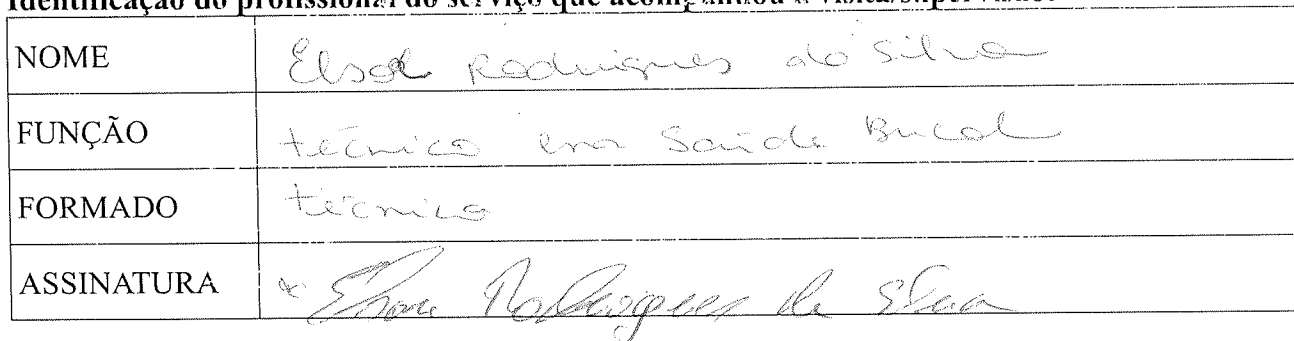 Identificação do profissional do serviço que acompanhou a visita/supervisão:
NOME Rodrigues da Silva
FUNÇÃO técnico em Saúde Bucal
FORMADO técnico
ASSINATURA Rodrigues da Silva